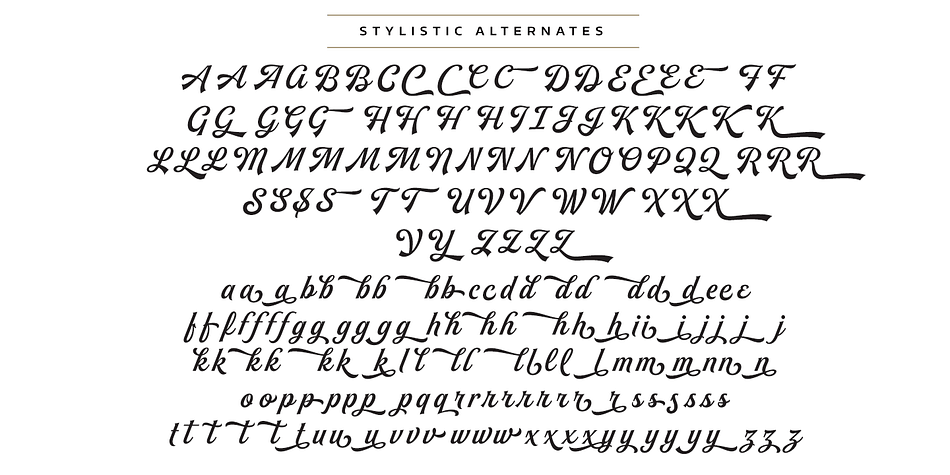 STYLISTIC ALTERNATES
AAAABBCCCCC DDEEEEE FF
GGGGG HHHHIIJJKKKKK
LLLMMMMMNNNNNOOPQQRRR
SSSS TT UVV WWXXX
YYZZZZ
aaabbbbbbccddddddeee
fffffffggggghhhhhhiiijjjjj
kkkkkkllllllllmmmnnn
oopppppqqrrrrrrrrssssss
ttttttuuuvvvwwwxxxxyyyyyyzzz